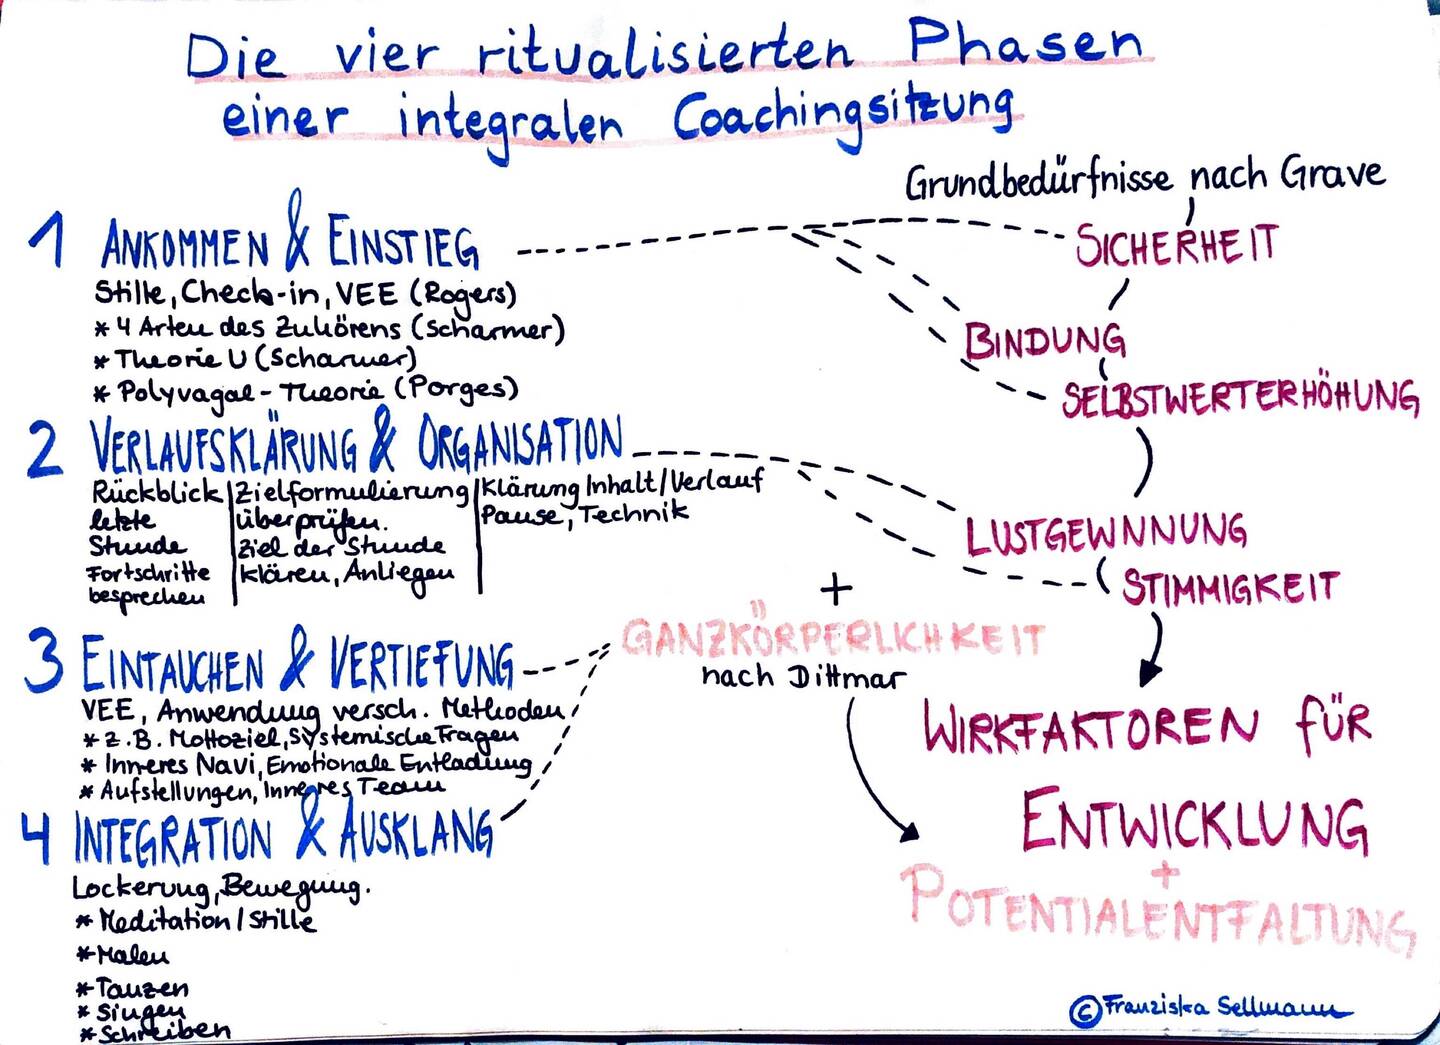 Die vier ritualisierten Phasen
einer integralen Coachingsitzung
Grundbedürfnisse nach Grawe
1 ANKOMMEN & EINSTIEG
Stille, Check-in, VEE (Rogers)
* 4 Arten des Zuhörens (Scharmer)
* Theorie U (Scharmer)
* Polyvagal-Theorie (Porges)
SICHERHEIT
BINDUNG
SELBSTWERTERHÖHUNG
2 VERLAUFSKLÄRUNG & ORGANISATION
Rückblick
letzte
Stunde
Fortschritte
besprechen
Zielformulierung
überprüfen.
Ziel der Stunde
klären, Anliegen
Klärung Inhalt/Verlauf
Pause, Technik
LUSTGEWNNUNG
STIMMIGKEIT
+
GANZKÖRPERLICHKEIT
nach Dittmar
3 EINTAUCHEN & VERTIEFUNG
VEE, Anwendung versch. Methoden
* z.B. Mottoziel, Systemische Fragen
* Inneres Navi, Emotionale Entladung
* Aufstellungen, Inneres Team
WIRKFAKTOREN FÜR
ENTWICKLUNG
+
POTENTIALENTFALTUNG
4 INTEGRATION & AUSKLANG
Lockerung, Bewegung.
* Meditation/Stille
* Malen
* Tanzen
* Singen
* Schreiben
© Franziska Sellmann